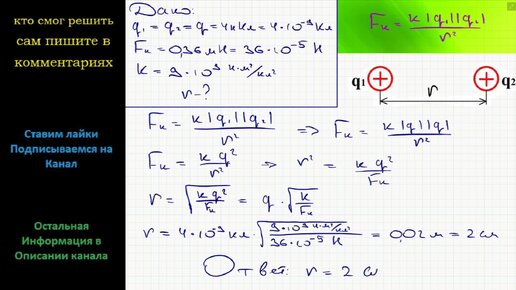 кто смог решить
сам пишите в
комментариях
Ставим лайки
Подписываемся на
Канал
Остальная
Информация в
Описании канала
Дано:
q₁ = q₂ = q = 4нКл = 4·10⁻⁹Кл
Fк = 0,36 мН = 36·10⁻⁵ Н
K = 9·10⁹ Н·м²/Кл²
r - ?
Fк = к|q₁||q₂|/r²
q₁ q₂
r
Fк = к|q₁||q₂|/r² => Fк = к|q||q|/r²
Fк = к q²/r² => r² = к q²/Fк
r = √(к q²/Fк) = q·√(к/Fк)
r = 4·10⁻⁹Кл·√(9·10⁹ Н·м²/Кл²/36·10⁻⁵ Н) = 0,02 м = 2 см
Ответ: r = 2 см